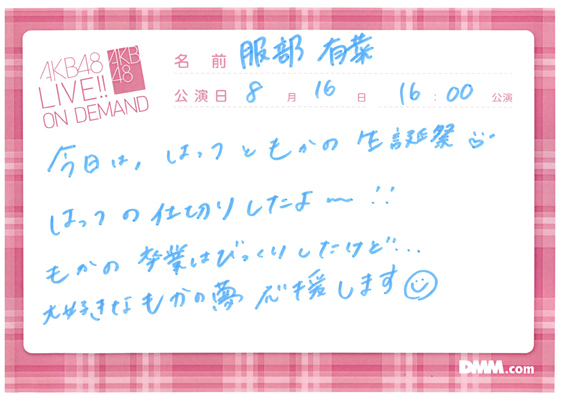 AKB48
LIVE!!
ON DEMAND
AKB
48
名前 服部 有菜
公演日 8月 16日 16:00 公演
今日は、はっつともかの生誕祭
はっつの仕切りしたよ〜!!
もかの卒業はびっくりしたけど…
大好きなもかの夢 応援します
DMM.com